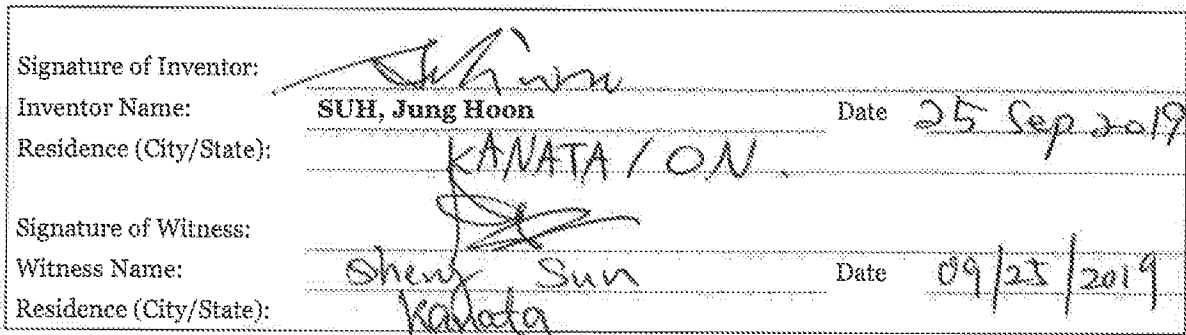 Signature of Inventor:
Inventor Name: SUH, Jung Hoon Date 25 Sep 2019
Residence (City/State): KANATA / ON.
Signature of Witness:
Witness Name: Sheng Sun Date 09/25/2019
Residence (City/State): Kanata